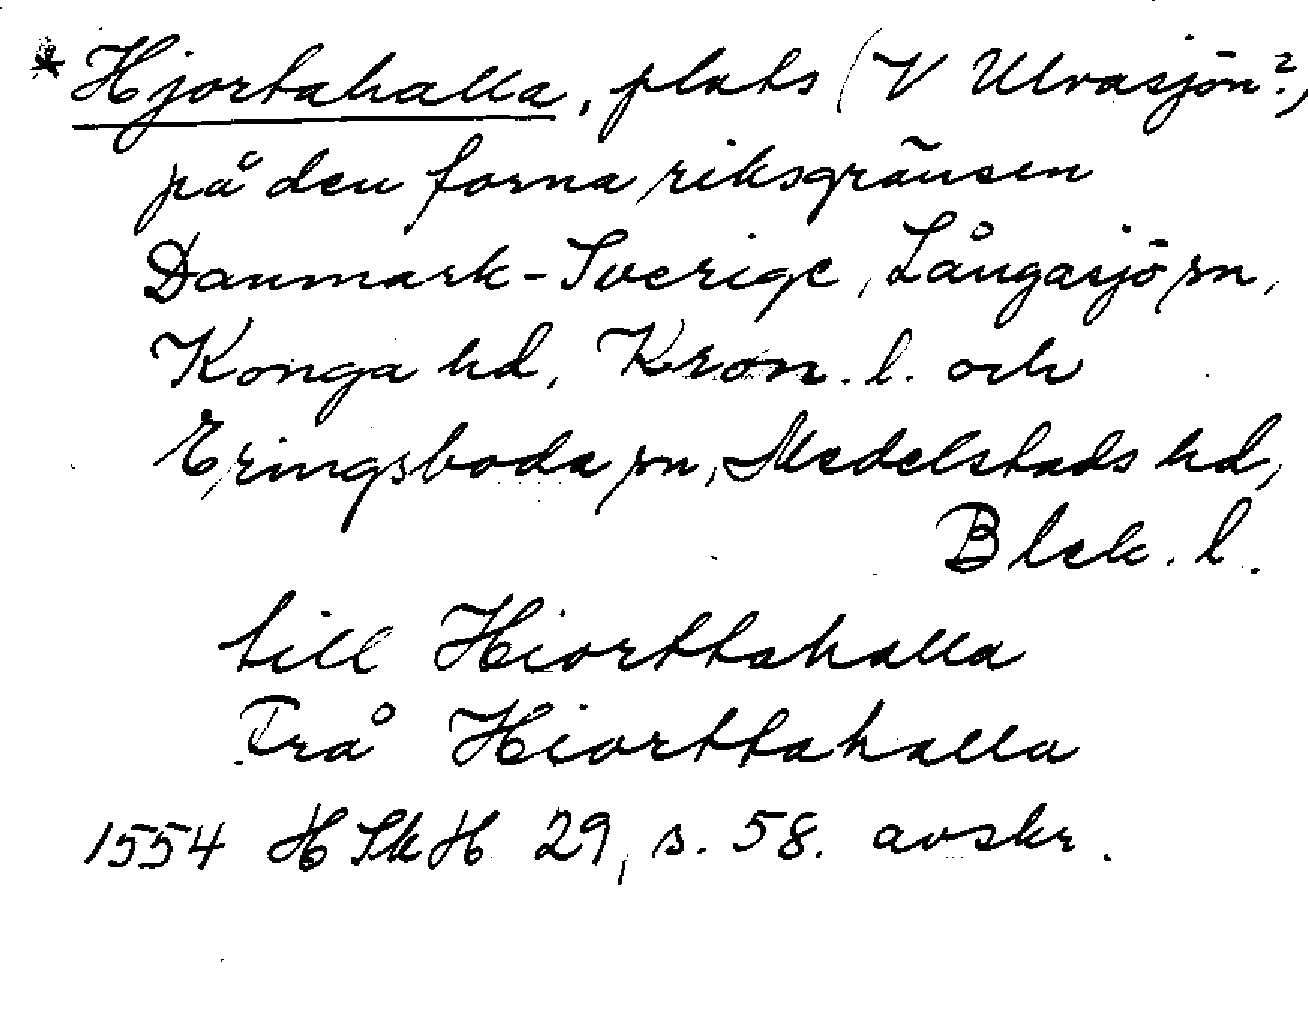 * Hjortahalla, plats (V Ulvasjön?,
på den forna riksgränsen
Danmark-Sverige, Långasjö sn,
Konga hd, Kron. l. och
Eringsboda sn, Medelstads hd,
Blek. l.
till Hiorttahalla
Frå Hiorttahalla
1554 HSkH 29, s. 58. avskr.